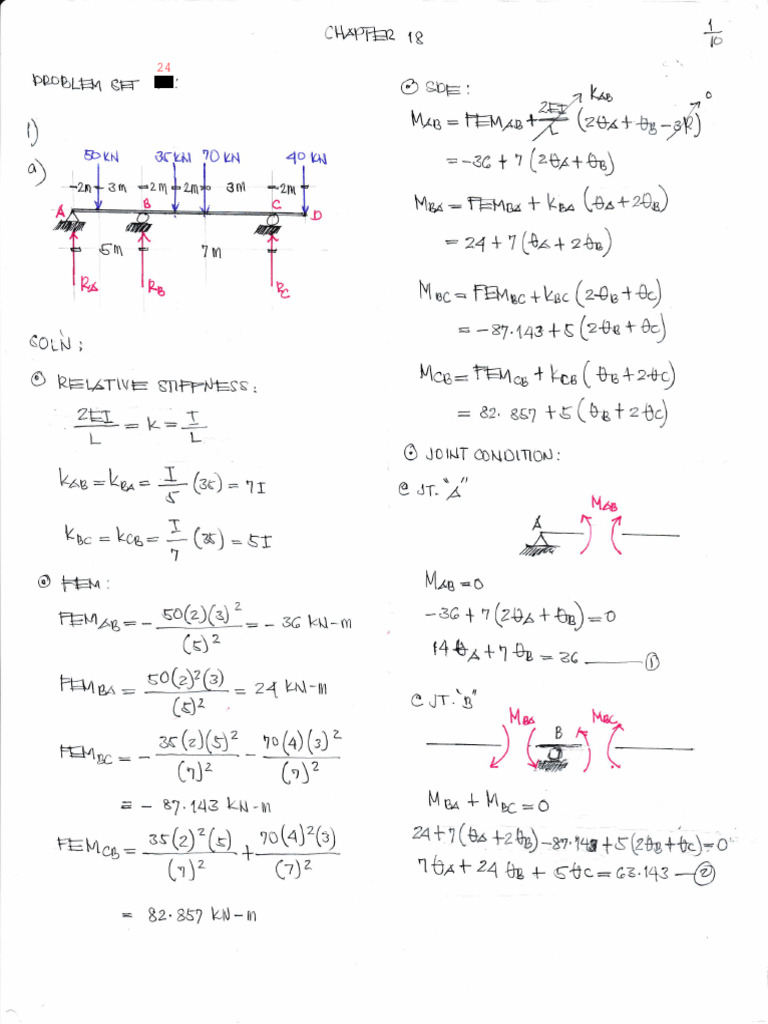 CHAPTER 18
1/10
24
PROBLEM SET :
1)
a)
50 KN 35 KN 70 KN 40 KN
2m 3m 2m 2m 3m 2m
A B C D
5m 7m
RA RB RC
SOL'N:
RELATIVE STIFFNESS:
2EI/L = K = I/L
KAB = KBA = I/5 (35) = 7I
KBC = KCB = I/7 (35) = 5I
FEM:
FEMAB = - 50(2)(3)²/(5)² = - 36 KN-m
FEMBA = 50(2)²(3)/(5)² = 24 KN-m
FEMBC = - 35(2)(5)²/(7)² - 70(4)(3)²/(7)²
= - 87.143 KN-m
FEMCB = 35(2)²(5)/(7)² + 70(4)²(3)/(7)²
= 82.857 KN-m
SDE:
KAB 0
MAB = FEMAB + 2EI/L (2θA + θB - 3R)
= -36 + 7(2θA + θB)
MBA = FEMBA + KBA (θA + 2θB)
= 24 + 7(θA + 2θB)
MBC = FEMBC + KBC (2θB + θC)
= -87.143 + 5(2θB + θC)
MCB = FEMCB + KCB (θB + 2θC)
= 82.857 + 5(θB + 2θC)
JOINT CONDITION:
@ JT. "A"
MAB
A
MAB = 0
-36 + 7(2θA + θB) = 0
14θA + 7θB = 36 —— ①
@ JT. "B"
MBA B MBC
MBA + MBC = 0
24 + 7(θA + 2θB) - 87.143 + 5(2θB + θC) = 0
7θA + 24θB + 5θC = 63.143 — ②